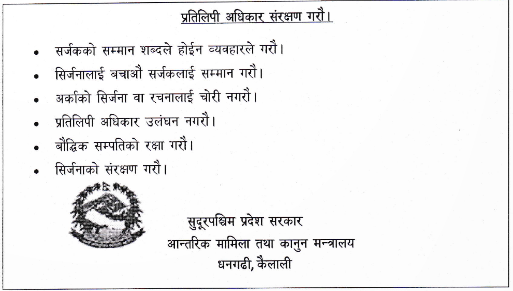 प्रतिलिपी अधिकार संरक्षण गरौं।
• सर्जकको सम्मान शब्दले होईन व्यवहारले गरौं।
• सिर्जनालाई बचाऔं सर्जकलाई सम्मान गरौं।
• अर्काको सिर्जना वा रचनालाई चोरी नगरौं।
• प्रतिलिपी अधिकार उलंघन नगरौं।
• बौद्धिक सम्पतिको रक्षा गरौं।
• सिर्जनाको संरक्षण गरौं।
सुदूरपश्चिम प्रदेश सरकार
आन्तरिक मामिला तथा कानुन मन्त्रालय
धनगढी, कैलाली